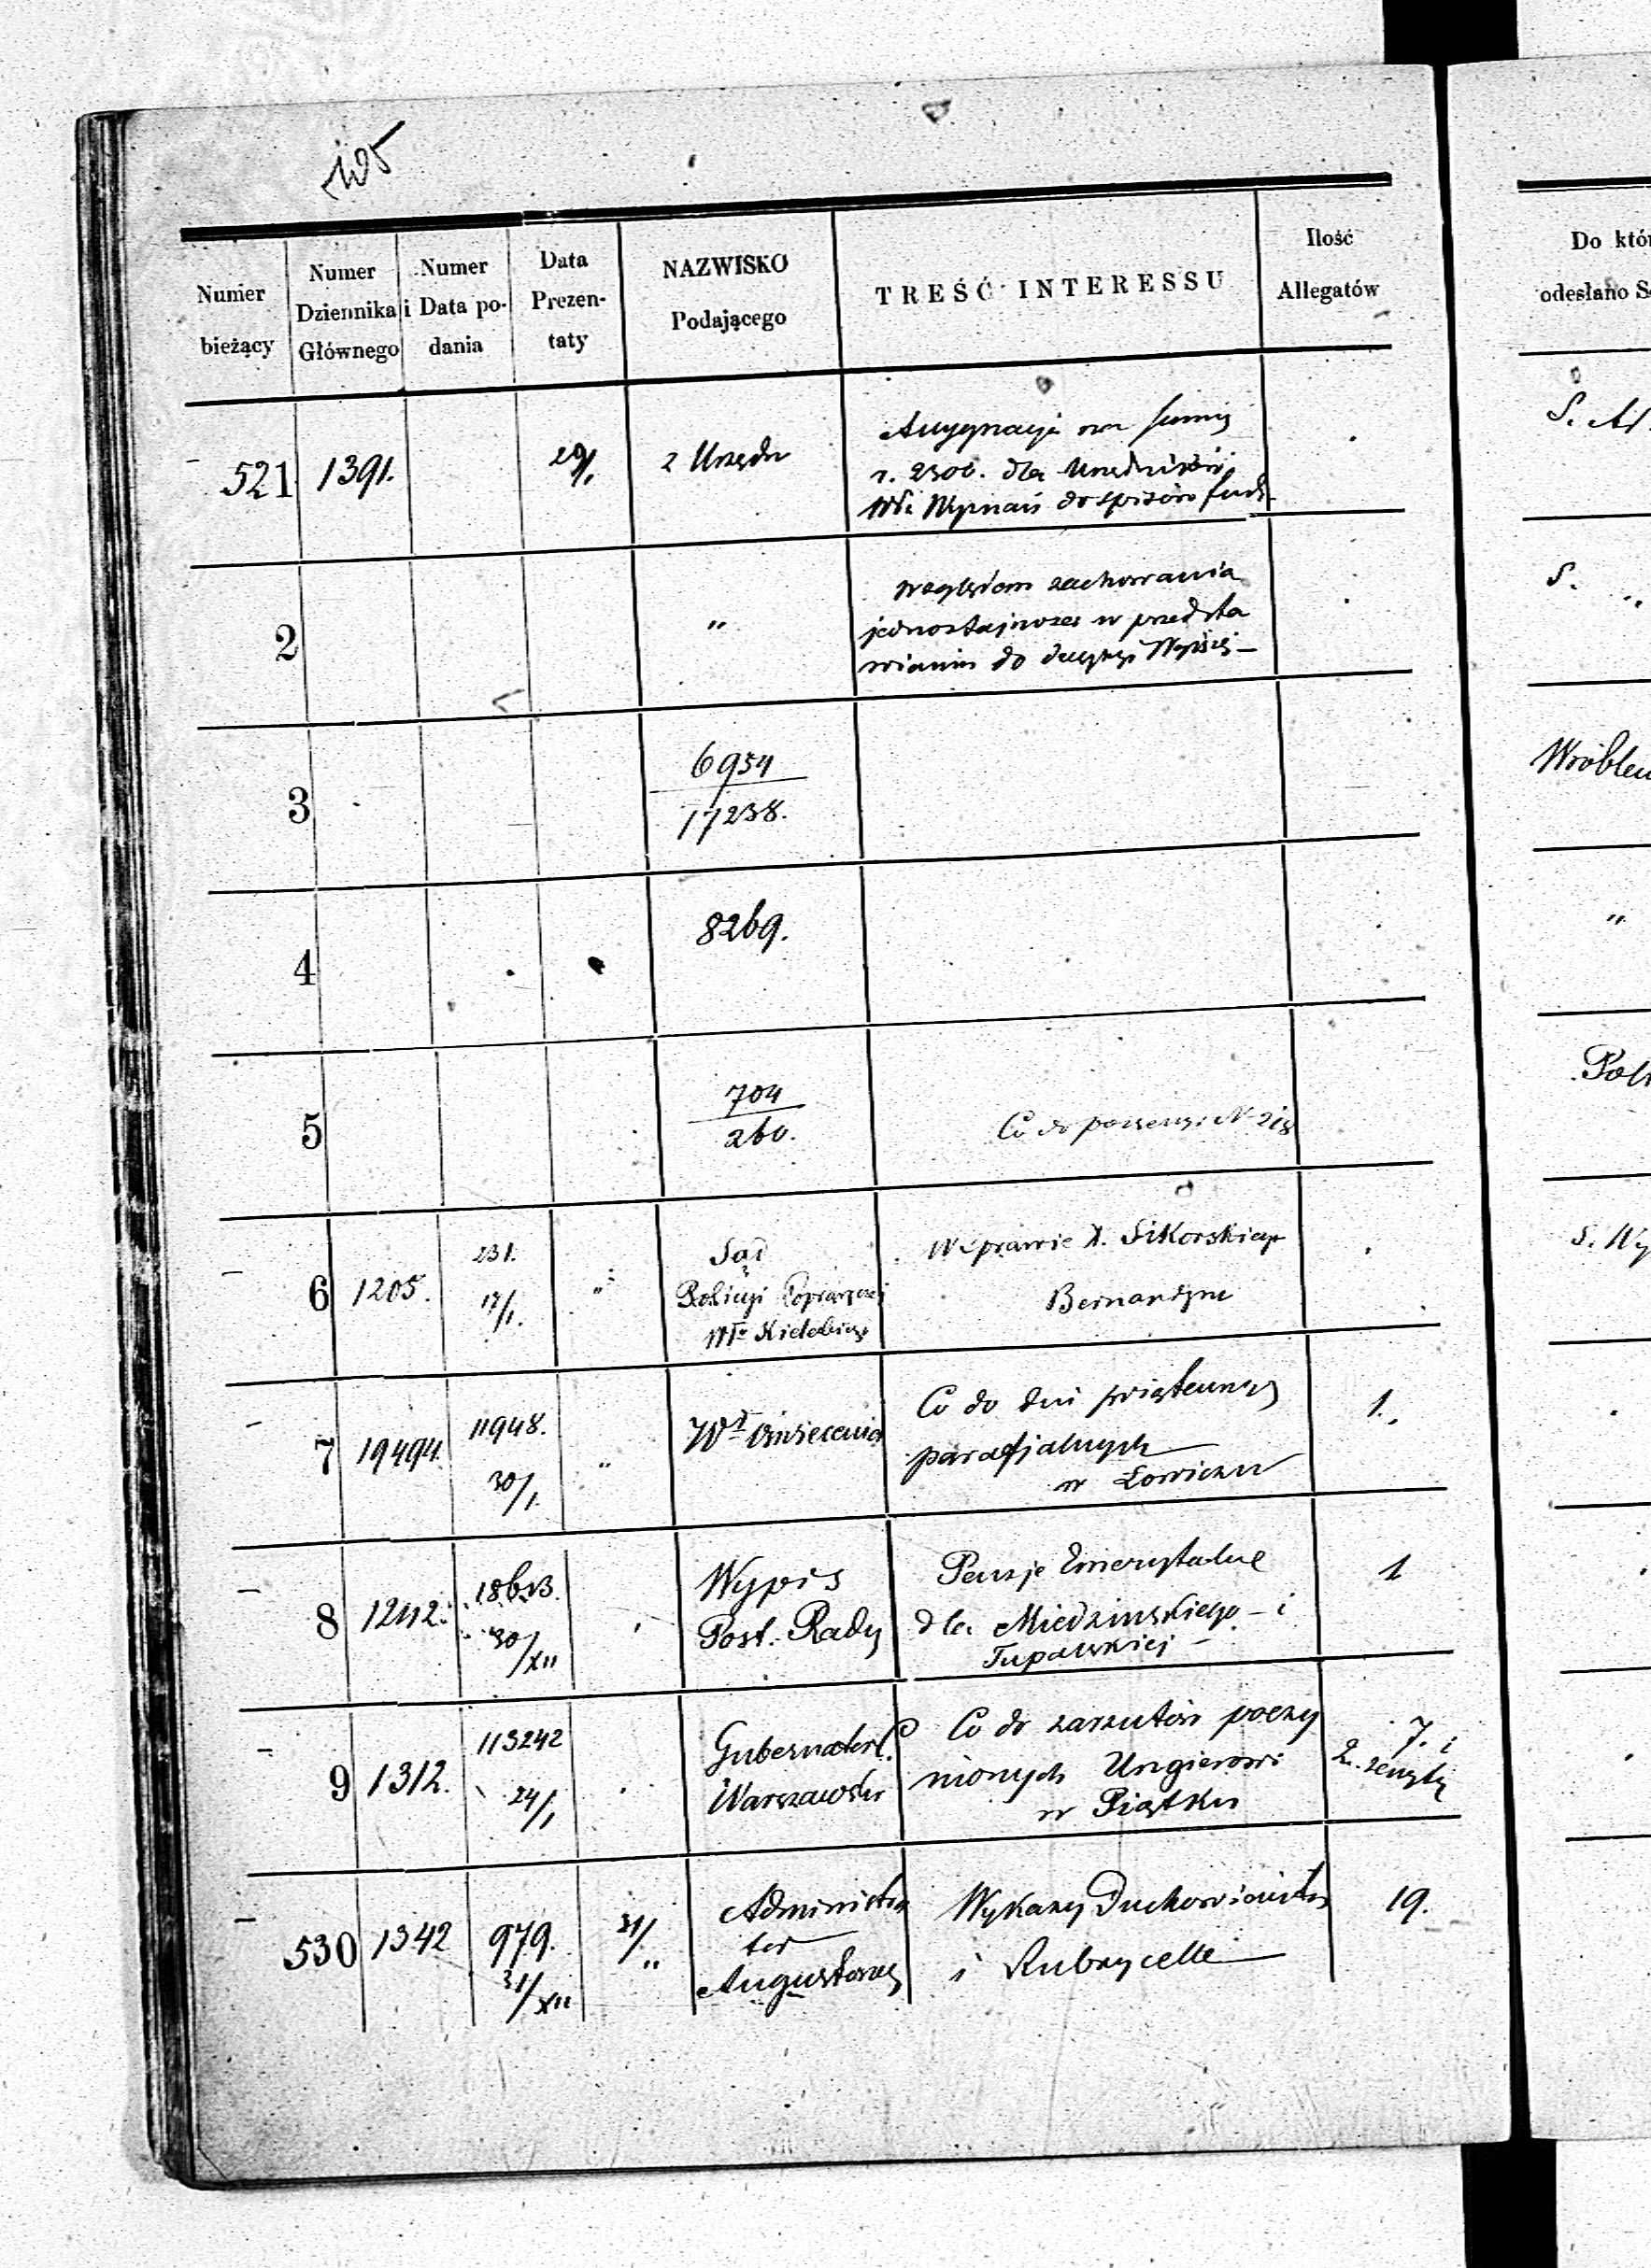 105
Numer bieżący
Numer Dziennika Głównego
Numer i Data podania
Data Prezentaty
NAZWISKO Podającego
TREŚĆ INTERESSU
Ilość Allegatów
Do któ
odesłano S
521 1391. 29/1 z Urzędu
Assygnacja na summę
r. 2306. dla Urzędników
Wi Wyznań do spisów fund.
S.
2 "
względem zachowania
jednostajnosci w przedsta
wianiu do decyzyi Wyższej –
S. "
3 6954
17238.
Wróblew
4 8269.
"
5 704
260.
Co do N 218
6 1205. 231. 17/1. "
Sąd
Policyi Poprawczej
Wu Kieleckiego
W sprawie X. Sikorskiego
Bernardyna
S. Wy
7 19494. 11948. 30/1. "
Wł Oświecenia
Co do dni świątecznych
parafjalnych
w Łowiczu
1.
8 1242. 18613. 30/XII
Wypis
Post. Rady
Pensje Emerytalne
dla Miedzinskiego – i
Tupalskiej –
1
9 1312. 113242 24/1
Gubernator C.
Warszawski
Co do zarzutów poczy
nionych Ungierowi
w Piątku
7. i
2. zeszyty
530 1342 979. 31/XII 31/"
Administra
tor
Augustows
Wykazy Duchowieństwa
i Rubrycelle
19.